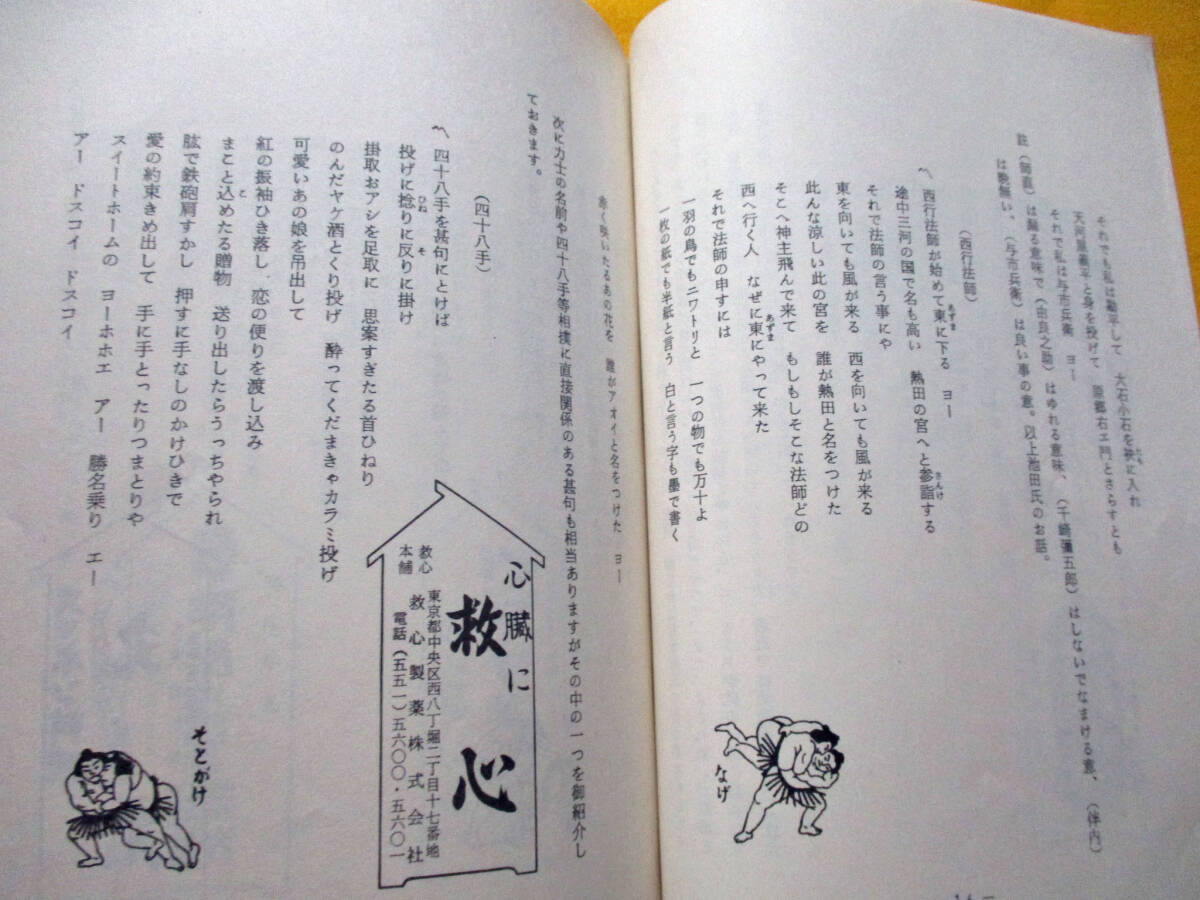 それでも私は勘平して　大石小石を袂に入れ
天河屋義平と身を投げて　原郷右エ門とさらすとも
それで私は与市兵衛　ヨー
註（師直）は踊る意味で（由良之助）はゆれる意味、（千崎彌五郎）はしないでなまける意、（伴内）
は晩無い、（与市兵衛）は良い事の意。以上池田氏のお話。
（西行法師）
〽西行法師が始めて東に下る　ヨー
途中三河の国で名も高い　熱田の宮へと参詣する
それで法師の言う事にや
東を向いても風が来る　西を向いても風が来る
此んな涼しい此の宮を　誰が熱田と名をつけた
そこへ神主飛んで来て　もしもしそこな法師どの
西へ行く人　なぜに東にやって来た
それで法師の申すには
一羽の鳥でもニワトリと　一つの物でも万十よ
一枚の紙でも半紙と言う　白と言う字も墨で書く
なげ
赤く咲いたるあの花を　誰がアオイと名をつけた　ヨー
次に力士の名前や四十八手等相撲に直接関係のある甚句も相当ありますがその中の一つを御紹介し
ておきます。
（四十八手）
〽四十八手を甚句にとけば
投げに捻りに反りに掛け
掛取おアシを足取に　思案すぎたる首ひねり
のんだヤケ酒とくり投げ　酔ってくだまきゃカラミ投げ
可愛いあの娘を吊出して
紅の振袖ひき落し　恋の便りを渡し込み
まこと込めたる贈物　送り出したらうっちやられ
肱で鉄砲肩すかし　押すに手なしのかけひきで
愛の約束きめ出して　手に手とったりつまとりや
スイートホームの　ヨーホホエ　アー　勝名乗り　エー
アー　ドスコイ　ドスコイ
心臓に
救心
東京都中央区西八丁堀二丁目十七番地
救心本舗　救心製薬株式会社
電話（五五一）五六〇〇・五六〇一
そとがけ